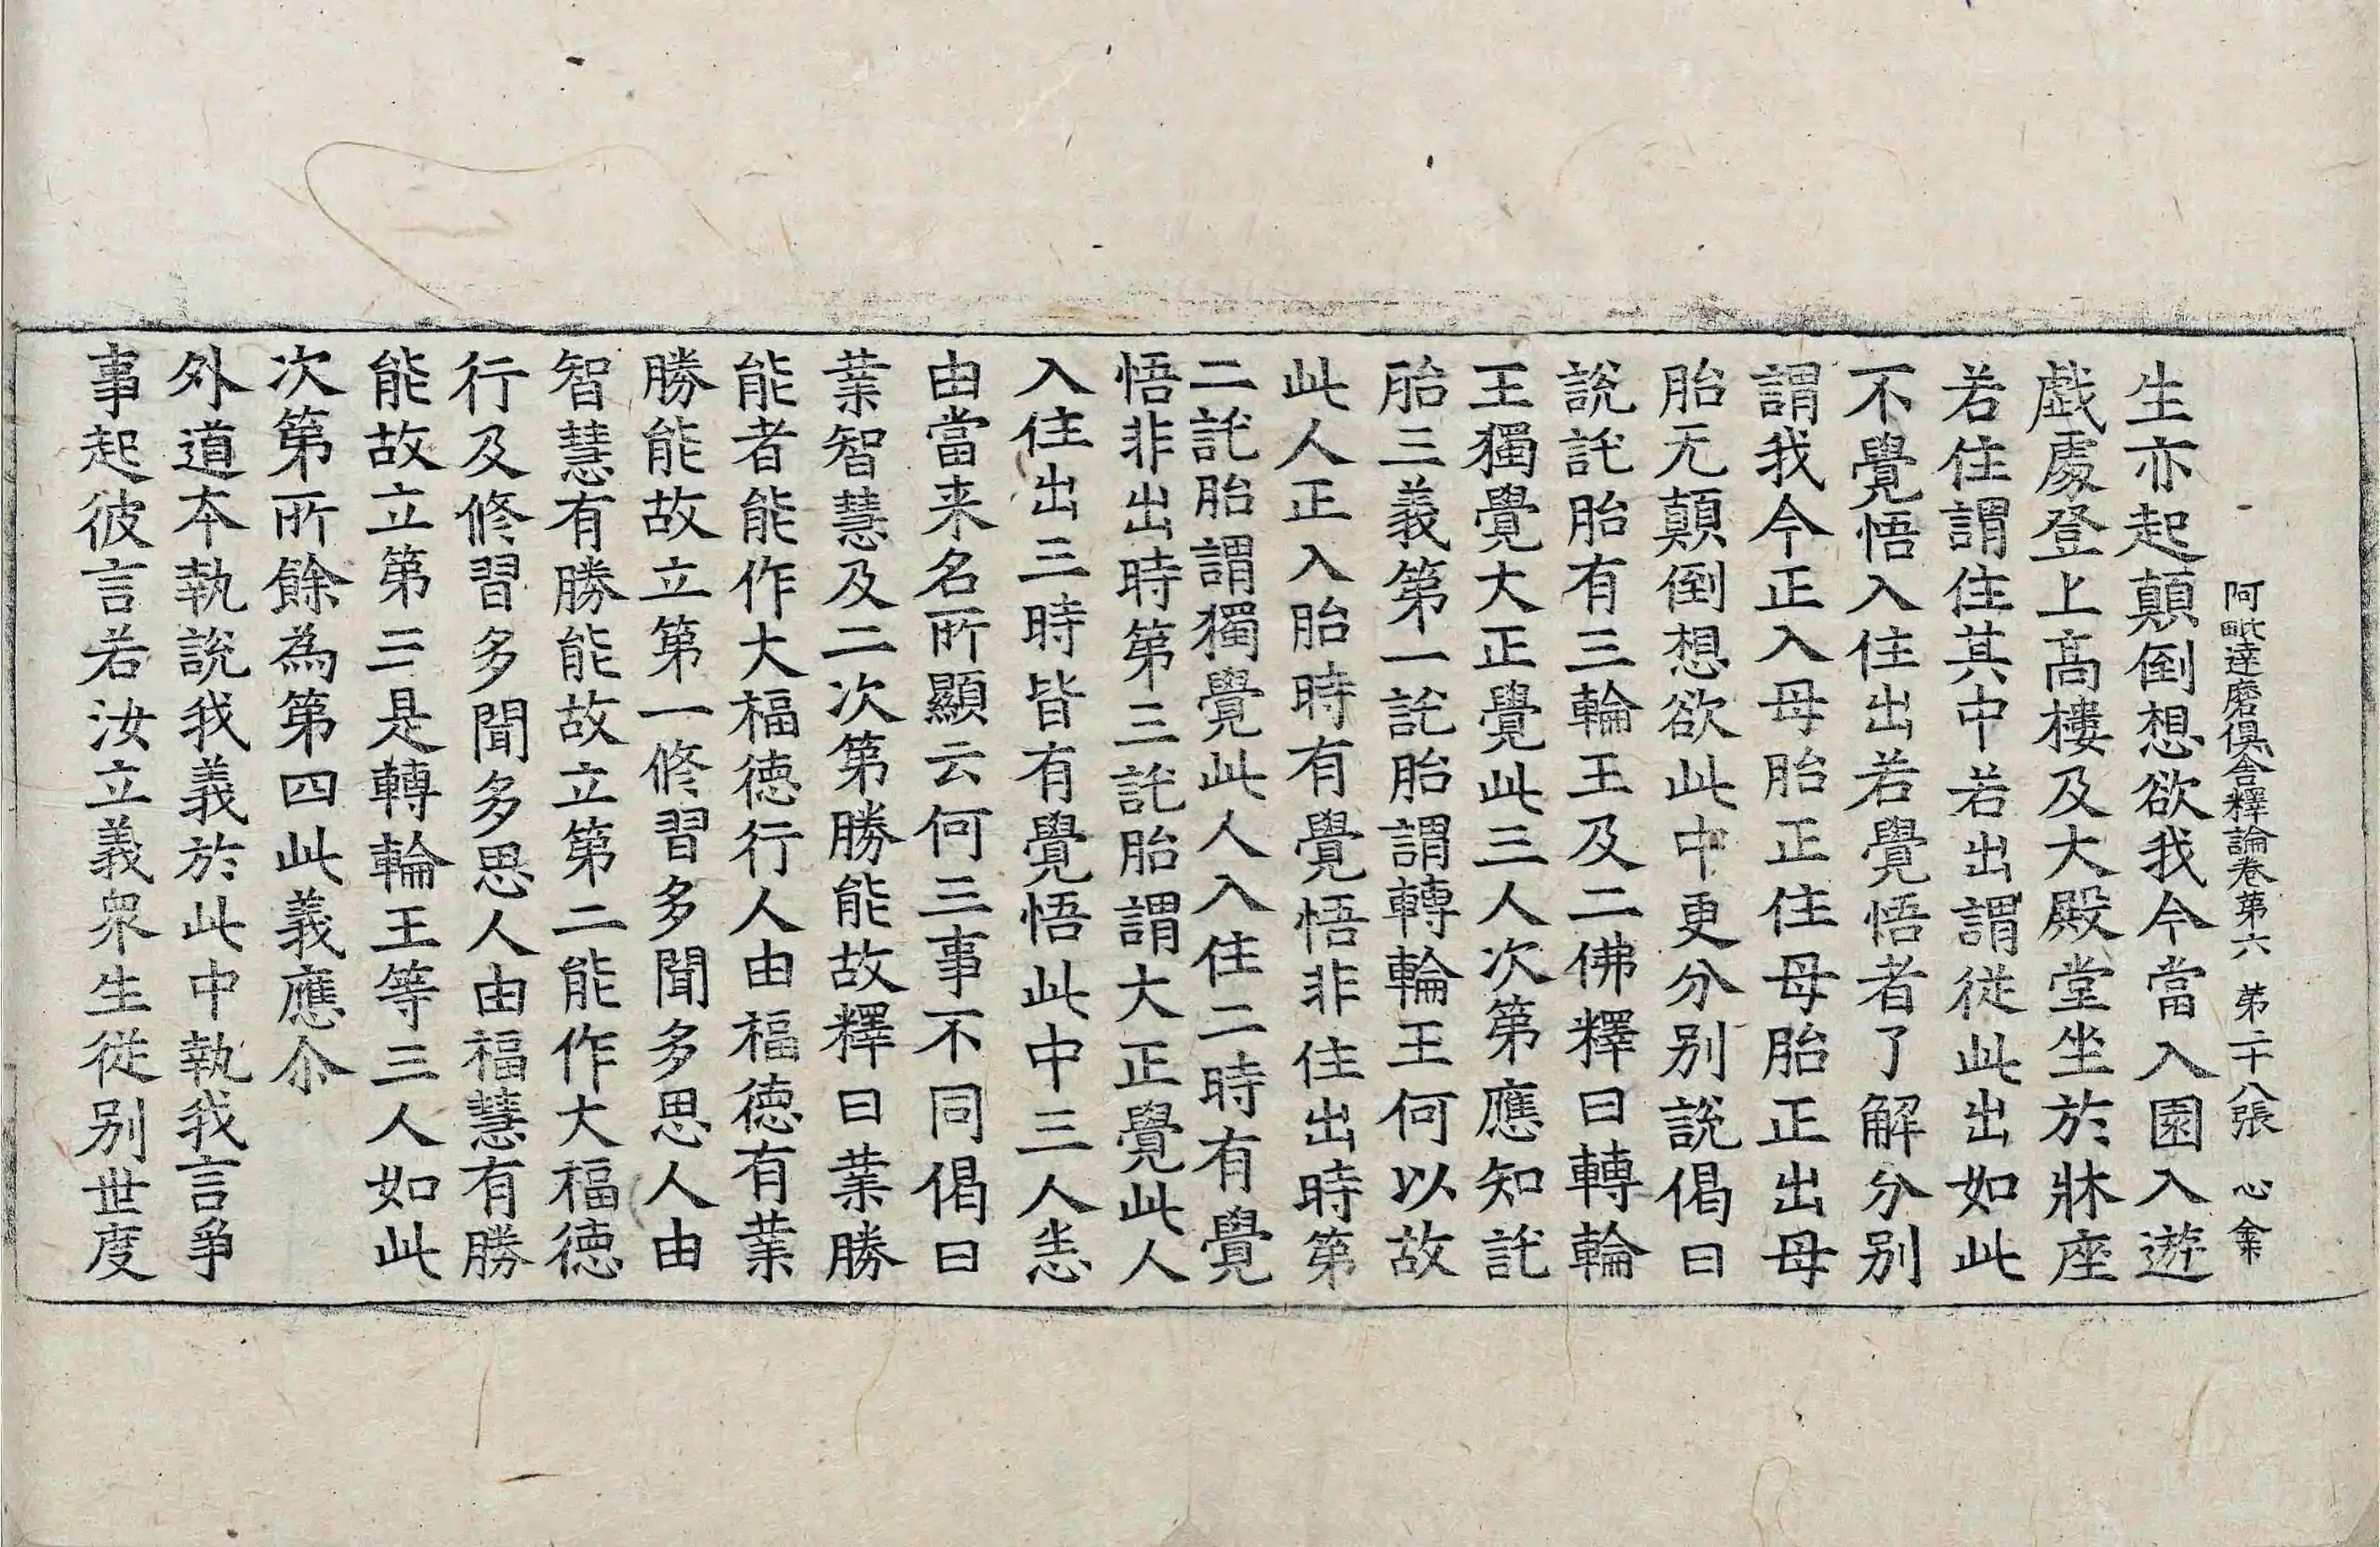 阿毗達磨俱舍釋論卷第六 第二十八張 心 龕
生亦起顛倒想欲我今當入園入遊
戲處登上高樓及大殿堂坐於牀座
若住謂住其中若出謂從此出如此
不覺悟入住出若覺悟者了解分別
謂我今正入母胎正住母胎正出母
胎无顛倒想欲此中更分別說偈曰
說託胎有三輪王及二佛釋曰轉輪
王獨覺大正覺此三人次第應知託
胎三義第一託胎謂轉輪王何以故
此人正入胎時有覺悟非住出時第
二託胎謂獨覺此人入住二時有覺
悟非出時第三託胎謂大正覺此人
入住出三時皆有覺悟此中三人恚
由當来名所顯云何三事不同偈曰
業智慧及二次第勝能故釋曰業勝
能者能作大福德行人由福德有業
勝能故立第一修習多聞多思人由
智慧有勝能故立第二能作大福德
行及修習多聞多思人由福慧有勝
能故立第三是轉輪王等三人如此
次第所餘為第四此義應尒
外道本執說我義於此中執我言爭
事起彼言若汝立義衆生從別世度